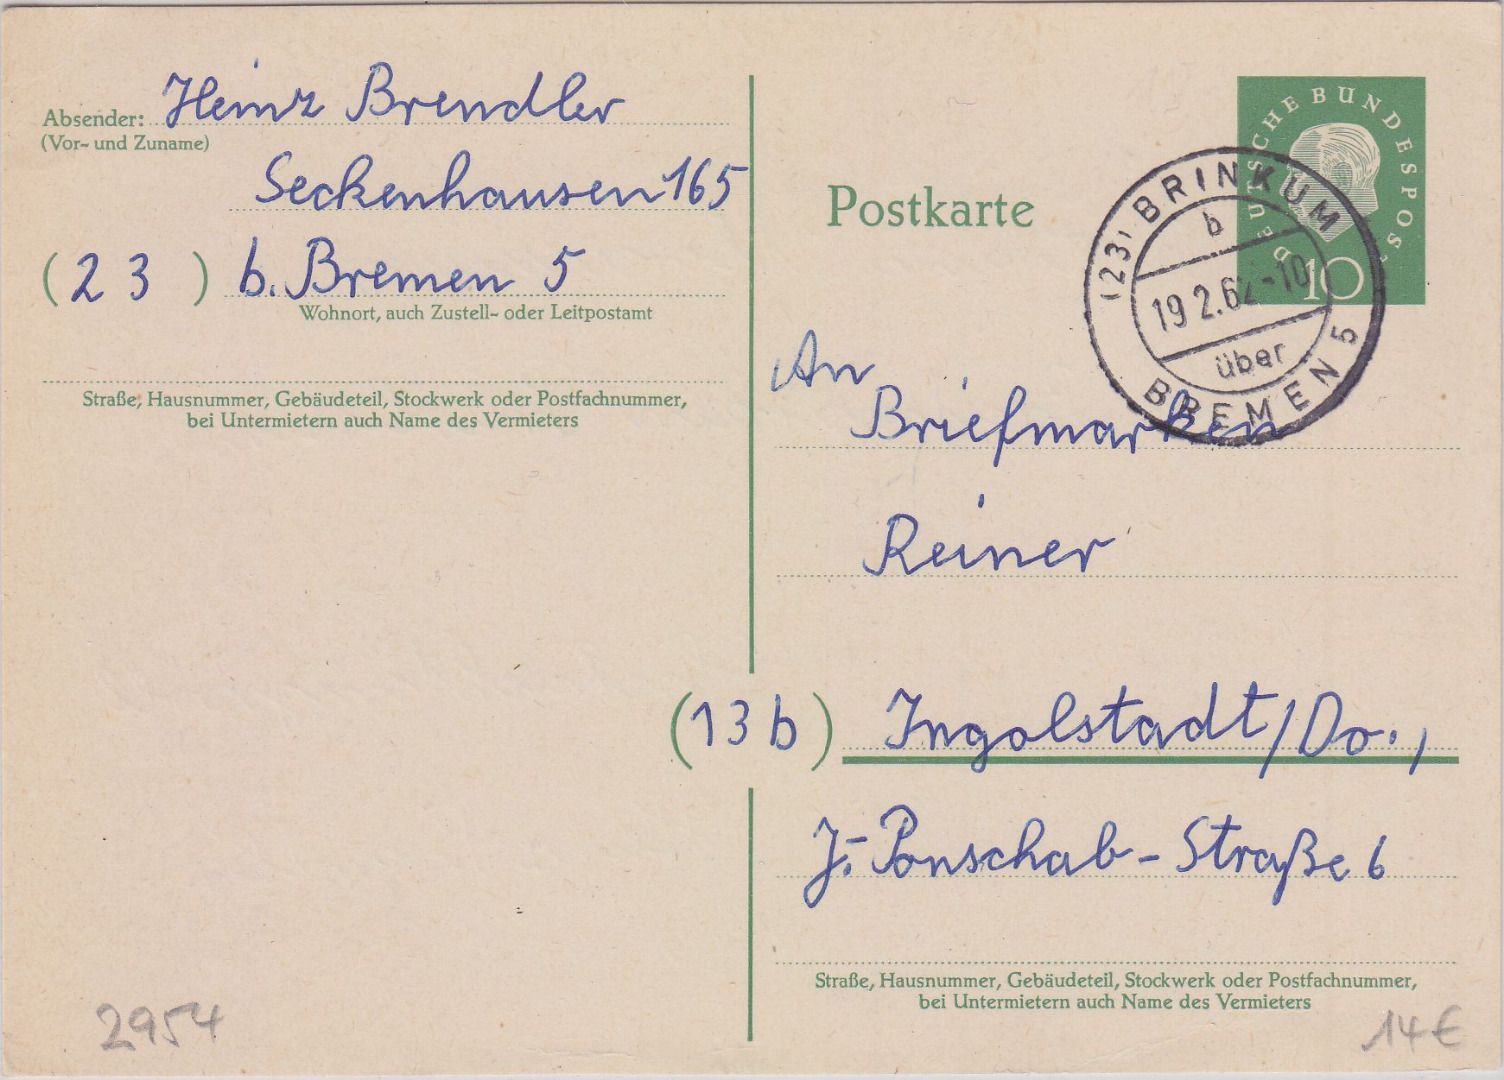 Absender: Heinz Brendler
(Vor- und Zuname)
Seckenhausen 165
(23) b. Bremen 5
Wohnort, auch Zustell- oder Leitpostamt
Straße, Hausnummer, Gebäudeteil, Stockwerk oder Postfachnummer,
bei Untermietern auch Name des Vermieters
2954
Postkarte
DEUTSCHE BUNDESPOST
10
(23) BRINKUM
b
19.2.62-10
über
BREMEN 5
An
Briefmarken
Reiner
(13b) Ingolstadt/Do.,
J.-Ponschab-Straße 6
Straße, Hausnummer, Gebäudeteil, Stockwerk oder Postfachnummer,
bei Untermietern auch Name des Vermieters
14€